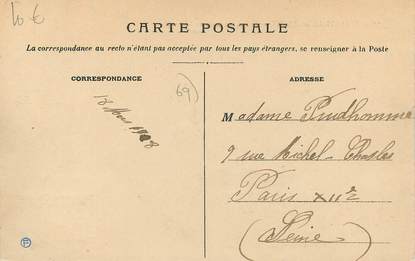 10 €
CARTE POSTALE
La correspondance au recto n'étant pas acceptée par tous les pays étrangers, se renseigner à la Poste
CORRESPONDANCE
ADRESSE
69)
18 Mars 1908
Madame Prudhomme
9 rue Michel-Chasles
Paris XIIe
(Seine)